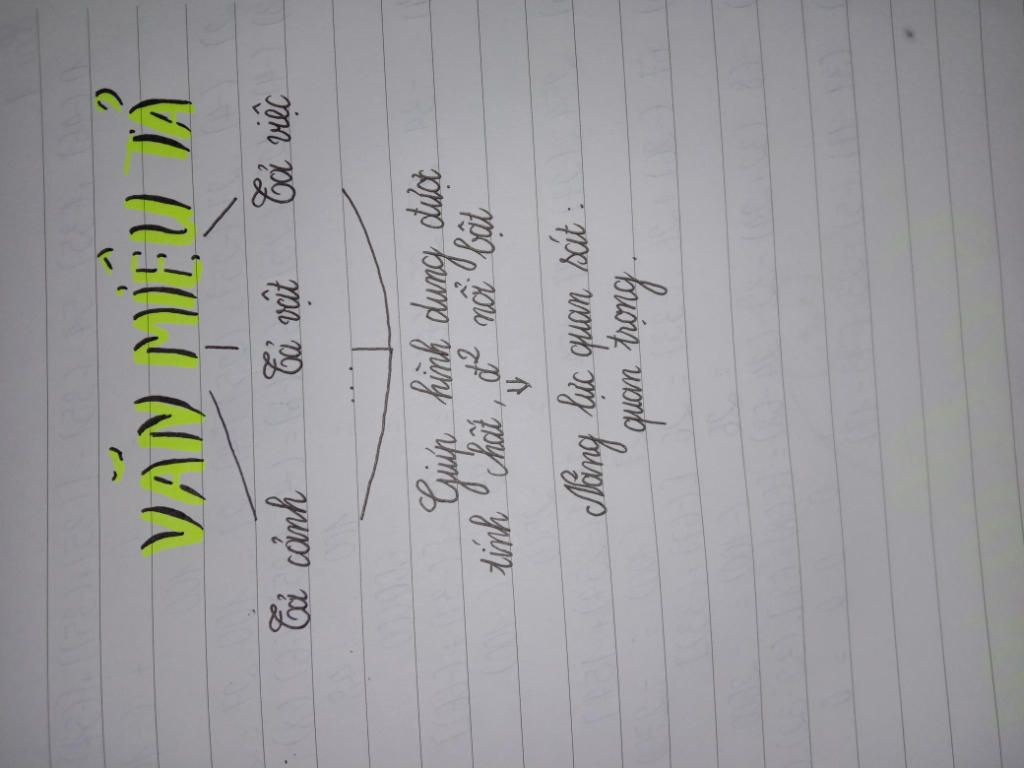 VĂN MIÊU TẢ
Tả cảnh Tả vật Tả việc
...
Giúp hình dung được
tính chất, đ² nổi bật
Năng lực quan sát:
quan trọng.